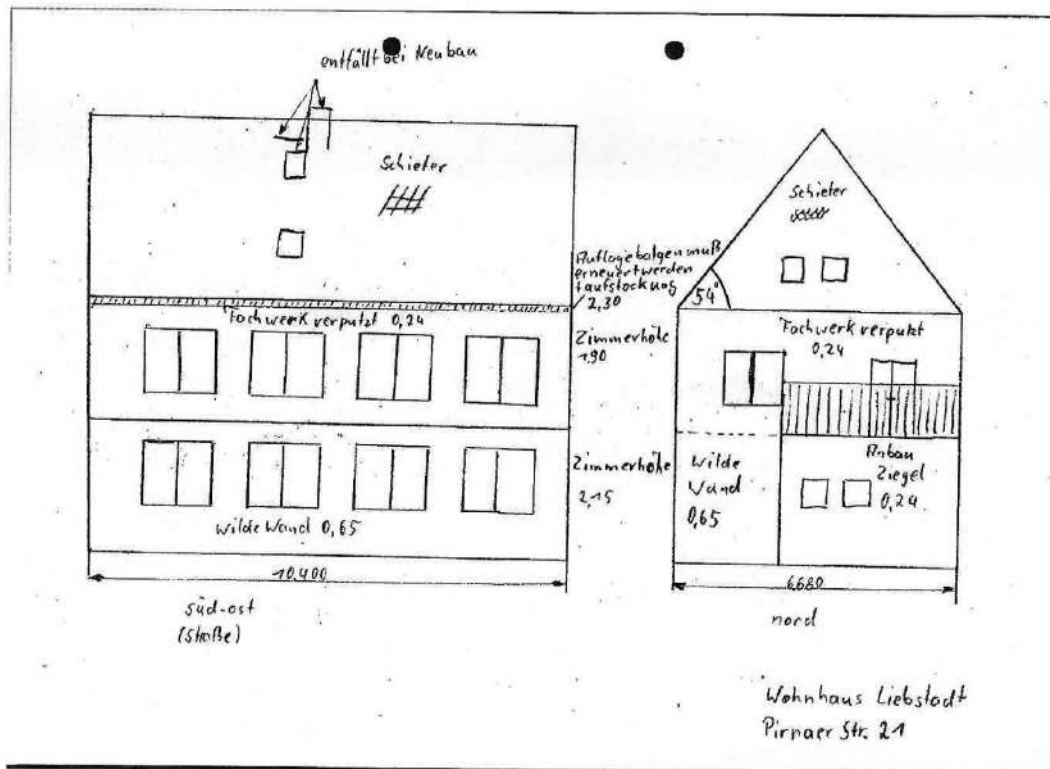 entfällt bei Neubau
Schiefer
Auflagebalgen muß
erneuert werden
+ aufstockung
2,30
Fachwerk verputzt 0,24
Zimmerhöhe
1,90
Zimmerhöhe
2,15
Wilde Wand 0,65
10,400
süd-ost
(Straße)
Schiefer
54°
Fachwerk verputzt
0,24
Wilde
Wand
0,65
Anbau
Ziegel
0,24
6,680
nord
Wohnhaus Liebstadt
Pirnaer Str. 21